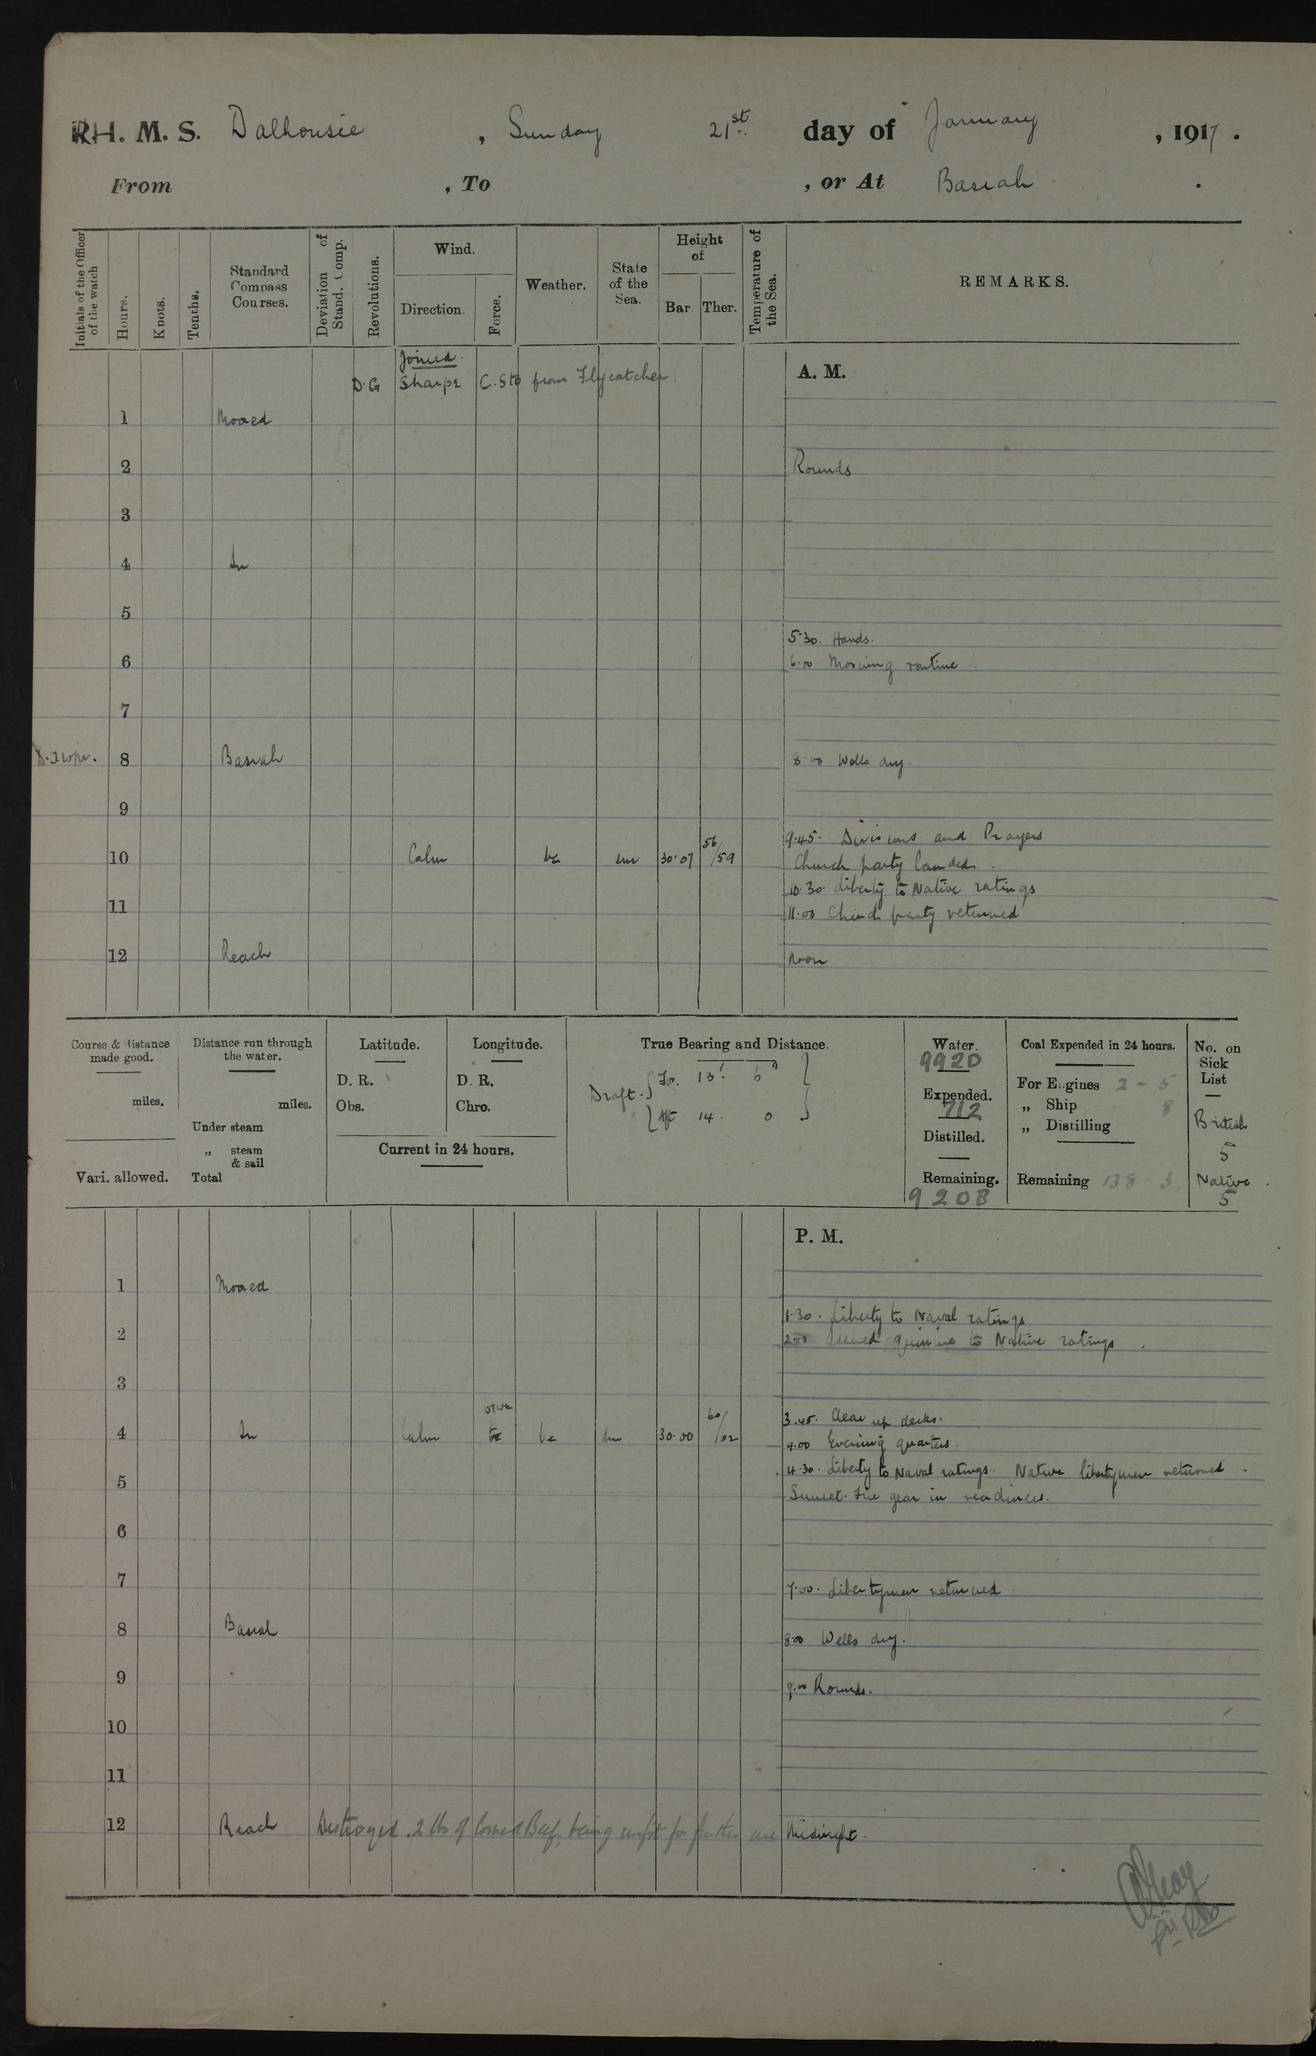 R.H. M. S. Dalhousie , Sunday 21st day of January , 1917 .
From , To , or At Basrah .
Initials of the Officer of the watch
Hours.
Knots.
Tenths.
Standard Compass Courses.
Deviation of Stand. Comp.
Revolutions.
Wind.
Direction.
Force.
Weather.
State of the Sea.
Height of
Bar. Ther.
Temperature of the Sea.
REMARKS.
Joined
D.G Sharpe C. Sto from Flycatcher.
A. M.
1 Moored
2 Rounds
3
4 In
5
5.30. Hands.
6 6.00 Morning routine
7
8 Basrah 8.00 Wells dry.
9
9.45. Divisions and Prayers
10 Calm bc sm 30.07 56/59 Church party landed.
10.30. Liberty to Native ratings
11 11.00 Church party returned
12 Reach Noon
Course & distance made good.
miles.
Vari. allowed.
Distance run through the water.
miles.
Under steam
„ steam & sail
Total
Latitude.
D. R.
Obs.
Longitude.
D. R.
Chro.
Current in 24 hours.
True Bearing and Distance.
Draft. For. 13' 6"
Aft 14 0
Water.
9920
Expended.
712
Distilled.
Remaining.
9208
Coal Expended in 24 hours.
For Engines 2 - 5
„ Ship 8
„ Distilling
Remaining 138 - 3
No. on Sick List
British
5
Native
5
P. M.
1 Moored
1.30. Liberty to Naval ratings
2 2.00 Issued quinine to Native ratings.
3
3.45. Clear up decks.
4 In Calm bc bc sm 30.00 60/62 4.00 Evening quarters.
4.30. Liberty to Naval ratings. Native libertymen returned.
5 Sunset. Fire gear in readiness.
6
7 7.00. Libertymen returned
8 Basrah 8.00 Wells dry.
9 9.00 Rounds.
10
11
12 Reach Destroyed 2 lbs of Corned Beef, being unfit for further use Midnight.